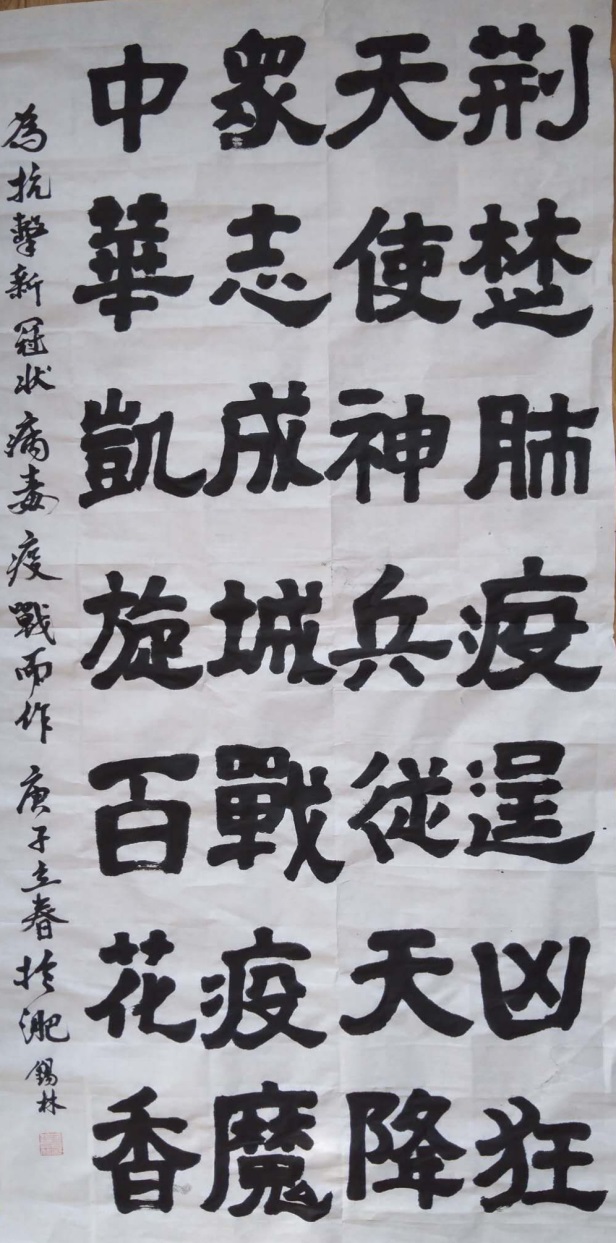 荆楚肺疫逞凶狂
天使神兵從天降
衆志成城戰疫魔
中華凱旋百花香
為抗擊新冠状病毒疫戰而作 庚子立春於淝 錫林